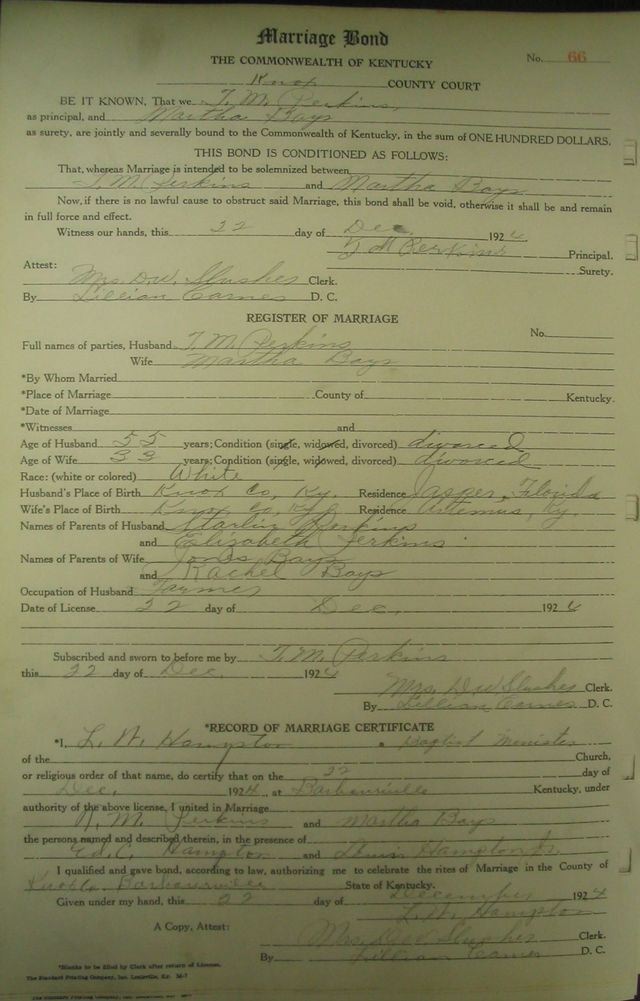 Marriage Bond
THE COMMONWEALTH OF KENTUCKY
No. 66
Knox COUNTY COURT
BE IT KNOWN, That we T. M. Perkins,
as principal, and Martha Bays
as surety, are jointly and severally bound to the Commonwealth of Kentucky, in the sum of ONE HUNDRED DOLLARS.
THIS BOND IS CONDITIONED AS FOLLOWS:
That, whereas Marriage is intended to be solemnized between
T. M. Perkins and Martha Bays
Now, if there is no lawful cause to obstruct said Marriage, this bond shall be void, otherwise it shall be and remain
in full force and effect.
Witness our hands, this 22 day of Dec, 1924
T M Perkins Principal.
Surety.
Attest:
Mrs. D.W. Slusher Clerk.
By Lillian Carnes D. C.
REGISTER OF MARRIAGE
No.
Full names of parties, Husband T. M. Perkins
Wife Martha Bays
*By Whom Married
*Place of Marriage County of Kentucky.
*Date of Marriage
*Witnesses and
Age of Husband 55 years; Condition (single, widowed, divorced) divorced
Age of Wife 33 years; Condition (single, widowed, divorced) divorced
Race: (white or colored) White
Husband's Place of Birth Knox Co, Ky. Residence Jasper, Florida
Wife's Place of Birth Knox Co, Ky Residence Artemus, Ky.
Names of Parents of Husband Starlin Perkins
and Elizabeth Perkins
Names of Parents of Wife Jones Bays
and Rachel Bays
Occupation of Husband Farmer
Date of License 22 day of Dec, 1924
Subscribed and sworn to before me by T. M. Perkins
this 22 day of Dec 1924
Mrs. D W Slusher Clerk.
By Lillian Carnes D. C.
*RECORD OF MARRIAGE CERTIFICATE
*I, L. W. Hampton a Baptist Minister
of the Church,
or religious order of that name, do certify that on the 22 day of
Dec, 1924, at Barbourville Kentucky, under
authority of the above license, I united in Marriage
M. Perkins and Martha Bays
the persons named and described therein, in the presence of
Ed. C. Hampton and Hampton Jr.
I qualified and gave bond, according to law, authorizing me to celebrate the rites of Marriage in the County of
Knox Co Barbourville State of Kentucky.
Given under my hand, this 22 day of December 1924
L. W. Hampton
A Copy, Attest: Mrs. D W Slusher Clerk.
By Lillian Carnes D. C.
*Blanks to be filed by Clerk after return of License.
The Standard Printing Company, Inc. Louisville, Ky. M-7